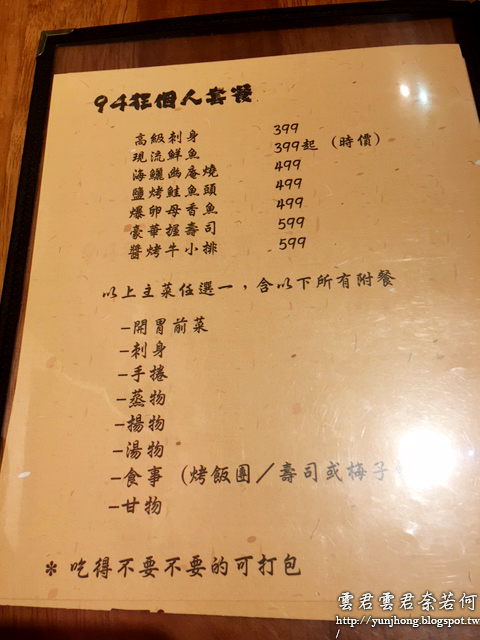 94狂個人套餐
高級刺身 399
現流鮮魚 399起 (時價)
海鱺幽庵燒 499
鹽烤鮭魚頭 499
爆卵母香魚 499
豪華握壽司 599
醬烤牛小排 599
以上主菜任選一，含以下所有附餐
－開胃前菜
－刺身
－手捲
－蒸物
－揚物
－湯物
－食事 (烤飯團／壽司或梅子
－甘物
＊ 吃得不要不要的可打包
雲君雲君奈若何
http://yunjhong.blogspot.tw
/